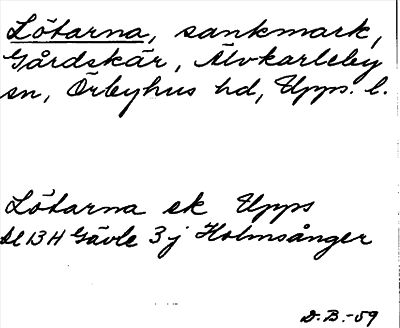 Lötarna, sankmark,
Gårdskär, Älvkarleby
sn, Örbyhus hd, Upps. l.
Lötarna ek Upps
bl 13H Gävle 3j Holmsånger
D.B.-59